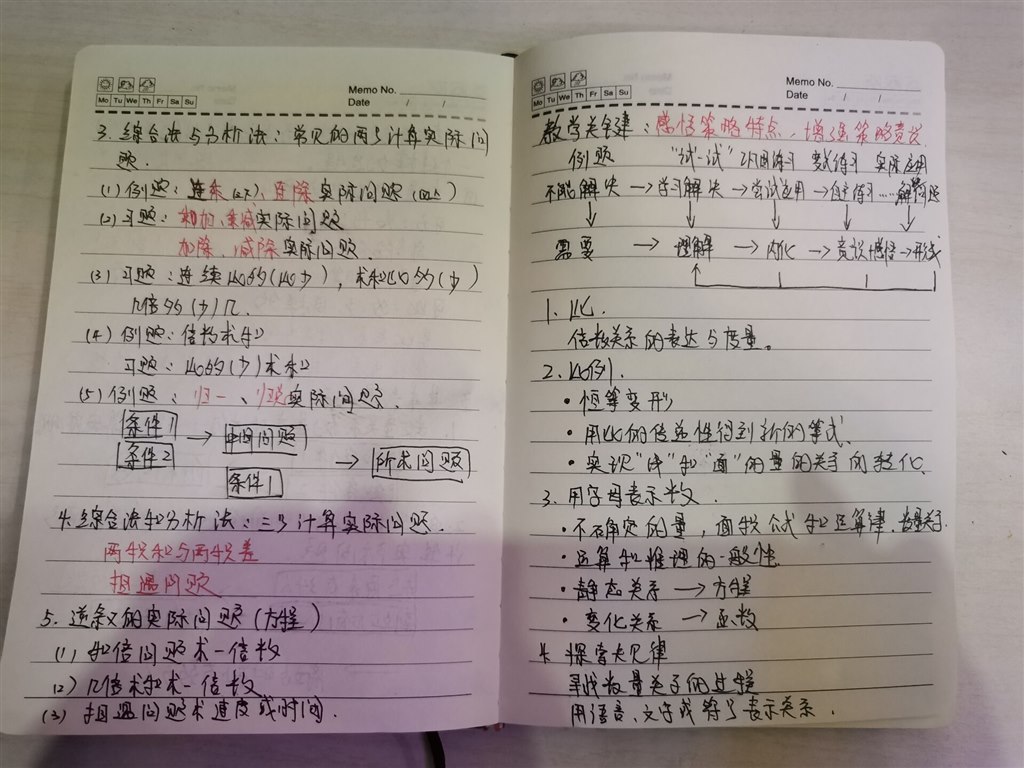 Memo No.
Mo Tu We Th Fr Sa Su
Date / /
3. 综合法与分析法：常见的两步计算实际问
题.
(1) 例题：连乘(三下)、连除实际问题(四上)
(2) 习题：乘加、乘减实际问题
加除、减除实际问题.
(3) 习题：连续比多的(比少)，求和比多的(少)
几倍多(少)几.
(4) 例题：倍数求和
习题：比多(少)求和
(5) 例题：归一、归总实际问题.
条件1
条件2
→ 中间问题
条件1
→ 所求问题
4. 综合法和分析法：三步计算实际问题.
两积和与两积差
相遇问题
5. 逆条义的实际问题(方程)
(1) 和倍问题求一倍数
(2) 几倍求和求一倍数
(3) 相遇问题求速度或时间.
Memo No.
Mo Tu We Th Fr Sa Su
Date / /
教学关键：感悟策略特点、增强策略意识
例题 "试一试" 巩固练习 变式练习 实际应用
不能解决 → 学习解决 → 尝试应用 → 自主练习……解决问题
↓ ↓ ↓ ↓ ↓
需要 → 理解 → 内化 → 意识增强 → 形成
1. 比.
倍数关系的表达与度量。
2. 比例.
· 恒等变形
· 用比的传递性得到新的等式.
· 实现"体"和"面"的量的关系的转化.
3. 用字母表示数.
· 不确定的量，面积公式和运算律、数量关系
· 运算和推理的一般性.
· 静态关系 → 方程
· 变化关系 → 函数
4. 探索规律
寻找数量关系的过程
用语言、文字或符号表示关系.